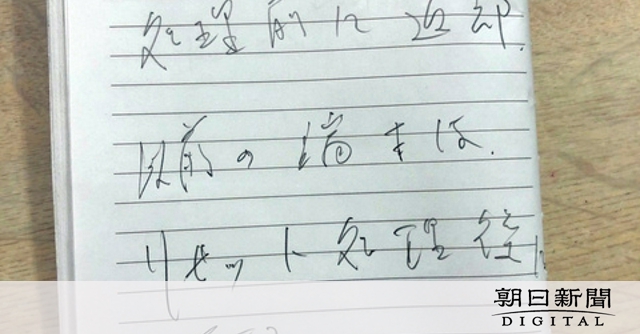 処理前に返却.
以前の端末は.
リセット処理後に
朝日新聞
DIGITAL